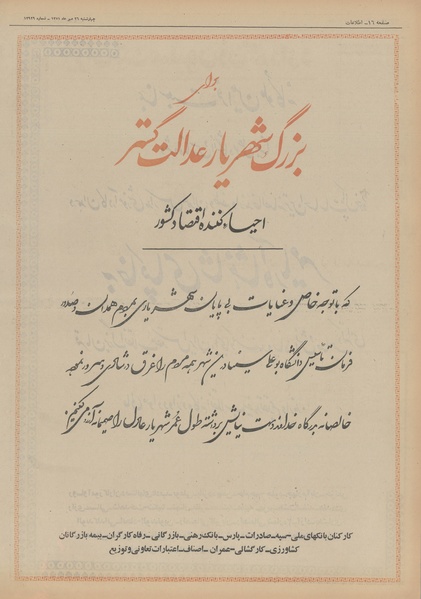 صفحه ۱۶ـ اطلاعات
برای
بزرگ شهریار عدالت گستر
احیاء کننده اقتصاد کشور
که با توجه خاص و عنایات بی پایان شهریاری بمردم همدان و صدور
فرمان تأسیس دانشگاه بوعلی سینا در این شهر همه مردم را غرق در شادی و سرور نموده
خالصانه بدرگاه خداوند دست نیایش برداشته طول عمر شهریار عادل را صمیمانه آرزو می‌کنیم
کارکنان بانکهای ملی ـ سپه ـ صادرات ـ پارس ـ بانک رهنی ـ بازرگانی ـ رفاه کارگران ـ بیمه بازرگانان
کشاورزی ـ کارگشائی ـ عمران ـ اصناف ـ اعتبارات تعاونی و توزیع